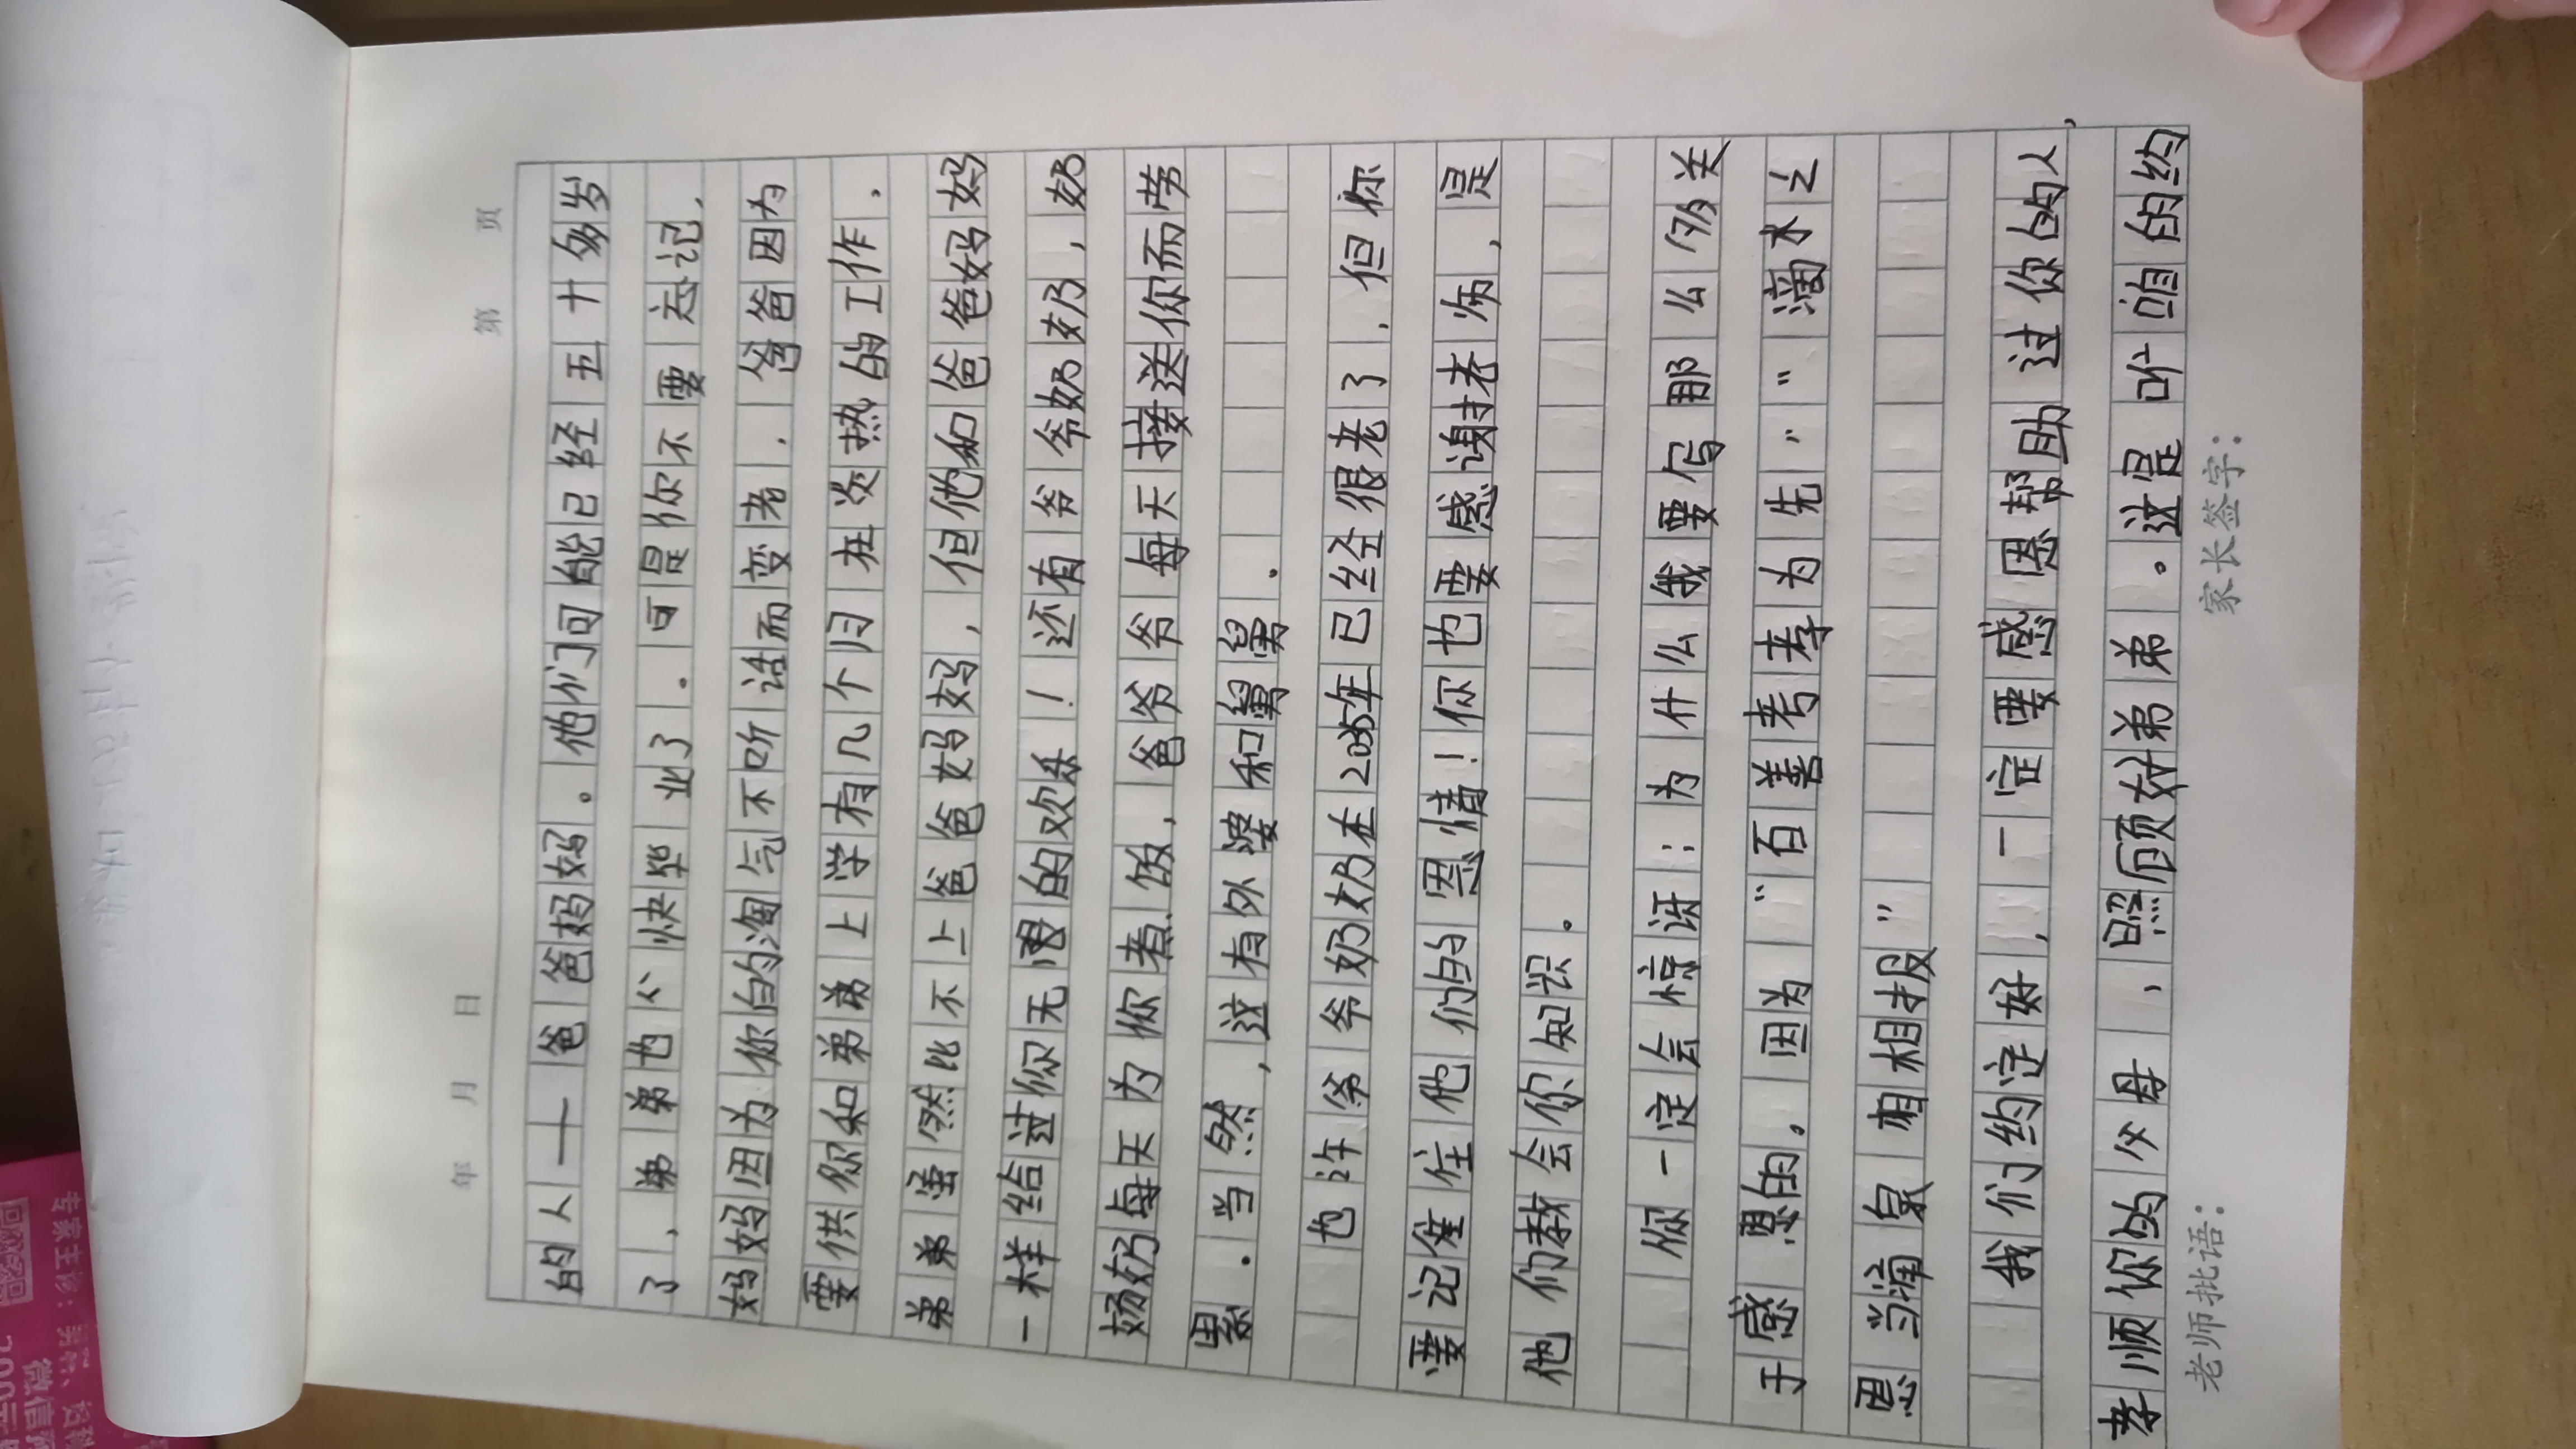 年 月 日 第 页
的人——爸爸妈妈。他们可能已经五十多岁
了，弟弟也个快毕业了。可是你不要忘记，
妈妈因为你的淘气不听话而变老，爸爸因为
要供你和弟弟上学有几个月在炎热的工作，
弟弟虽然比不上爸爸妈妈，但他和爸爸妈妈
一样给过你无限的欢乐！还有爷爷奶奶，奶
奶每天为你煮饭，爸爷爷每天接送你而劳
累。当然，这有外婆和舅舅。
也许爷爷奶奶在2035年已经很老了，但你
要记住他们的恩情！你也要感谢老师，是
他们教会你知识。
你一定会惊讶：为什么我要写那么多关
于感恩的。因为“百善孝为先”“滴水之
恩当涌泉相报”
我们约定好，一定要感恩帮助过你的人，
孝顺你的父母，照顾好弟弟。这是咱的约
老师批语： 家长签字：
专家主诊：
微信预